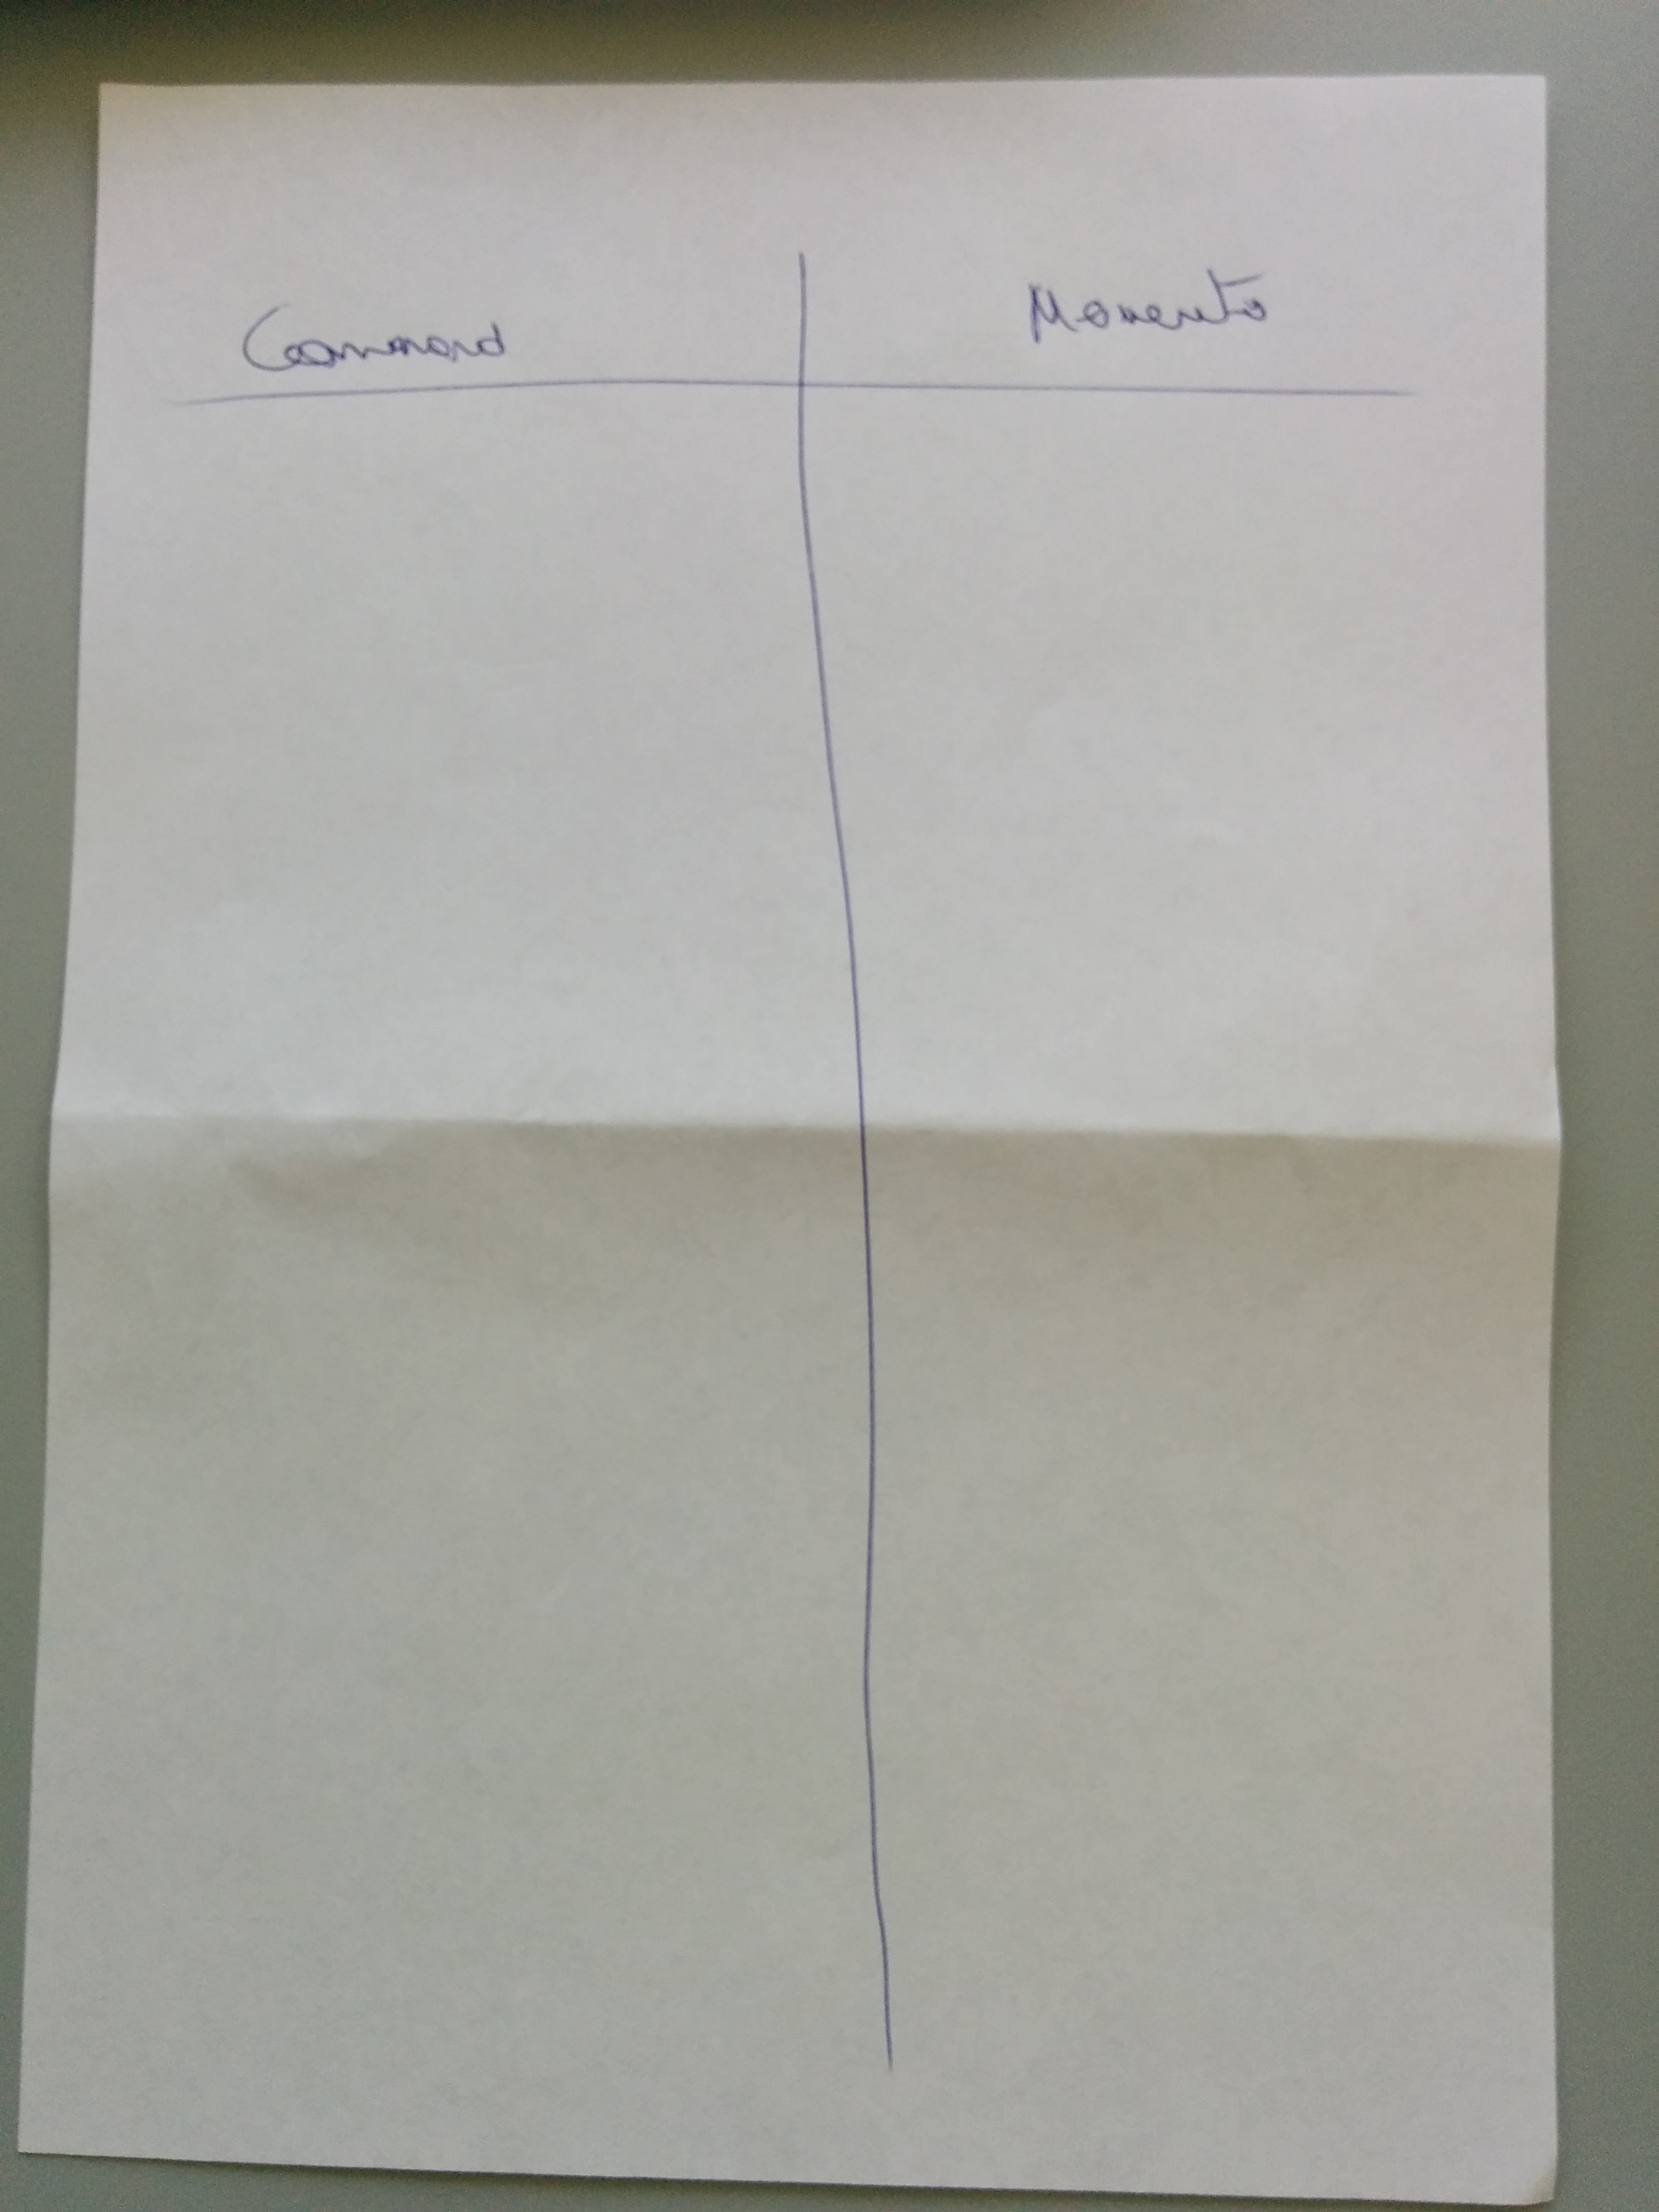 Command
Momento